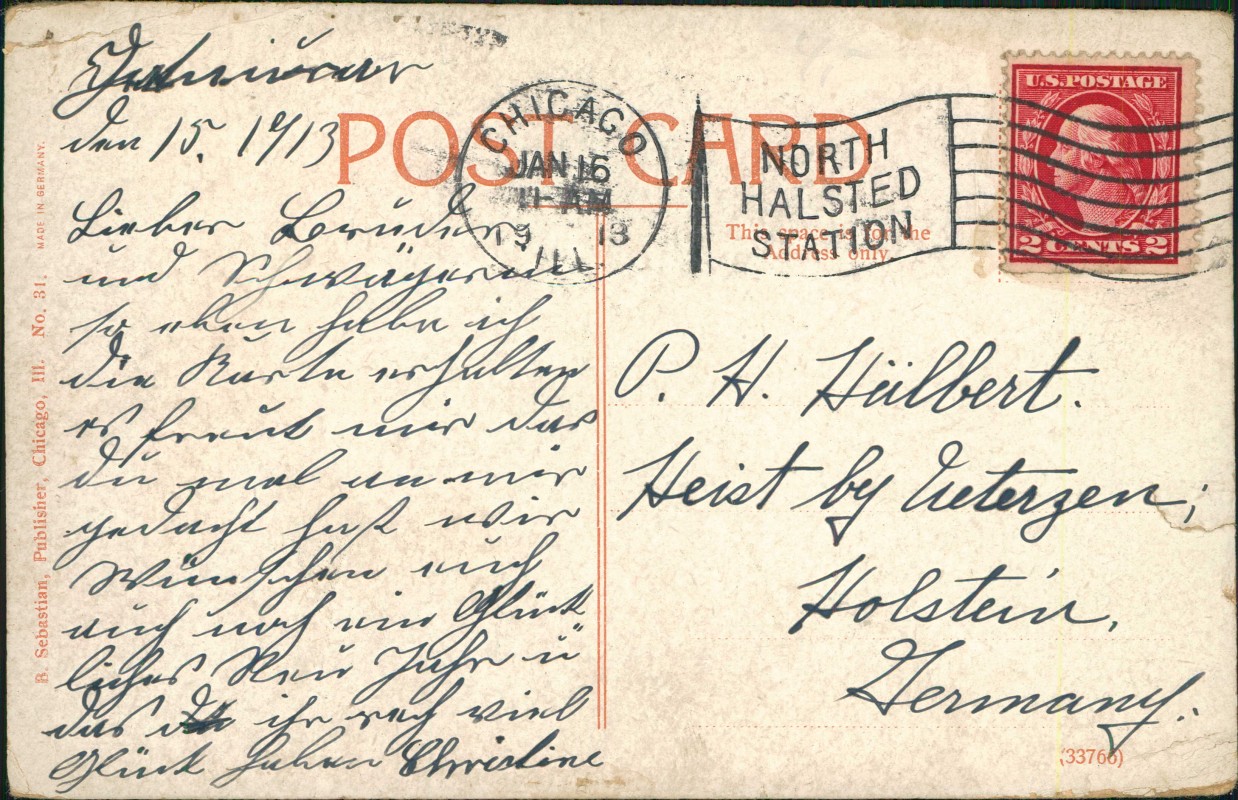 Januar
den 15. 1913
Lieber Bruder
und Schwägerin
so eben habe ich
die Karte erhalten
es freut mir das
du mal an mir
gedacht hast wir
wünschen euch
auch noch ein Glück
liches Neu Jahr u
das ihr rech viel
Glück haben Christine
POST CARD
CHICAGO
JAN 16
AM
1913
ILL.
NORTH
HALSTED
STATION
This space is for the
Address only.
U.S. POSTAGE
2 CENTS 2
P. H. Hülbert.
Heist by Ueterzen,
Holstein,
Germany.
(33766)
B. Sebastian, Publisher, Chicago, Ill. No. 31. MADE IN GERMANY.